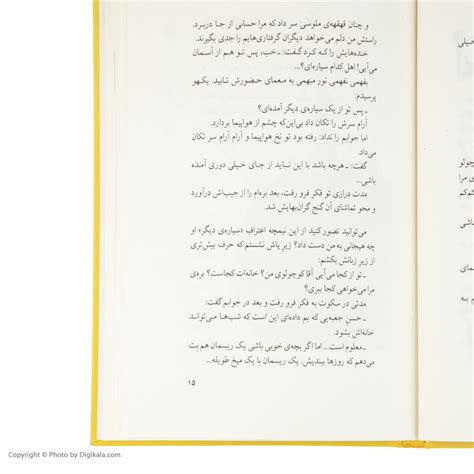 و چنان قهقهه‌ی ملوسی سر داد که مرا حسابی از جا دربرد.
راستش من دلم می‌خواهد دیگران گرفتاری‌هایم را جدی بگیرند.
خنده‌هایش را که کرد گفت: ـ خب، پس تو هم از آسمان
می‌آیی! اهل کدام سیاره‌ای؟
بفهمی نفهمی نور مبهمی به معمای حضورش تابید. یکهو
پرسیدم:
ـ پس تو از یک سیاره‌ی دیگر آمده‌ای؟
آرام سرش را تکان داد بی‌این‌که چشم از هواپیما بردارد.
اما جوابم را نداد: رفته بود تو نخ هواپیما و آرام آرام سر تکان
می‌داد.
گفت: ـ هرچه باشد با این نباید از جای خیلی دوری آمده
باشی...
مدت درازی تو فکر فرو رفت، بعد بره‌ام را از جیب‌اش درآورد
و محو تماشای آن گنج گران‌بهایش شد.
می‌توانید تصور کنید از این نیمچه اعترافِ «سیاره‌ی دیگر» او
چه هیجانی به من دست داد؟ زیرِ پاش نشستم که حرف بیش‌تری
از زیر زبانش بکشم:
ـ تو از کجا می‌آیی آقا کوچولوی من؟ خانه‌ات کجاست؟ بره‌ی
مرا می‌خواهی کجا ببری؟
مدتی در سکوت به فکر فرو رفت و بعد در جوابم گفت:
ـ حسنِ جعبه‌یی که بم داده‌ای این است که شب‌ها می‌تواند
خانه‌اش بشود.
ـ معلوم است... اما اگر بچه‌ی خوبی باشی یک ریسمان هم بِت
می‌دهم که روزها ببندیش. یک ریسمان با یک میخ طویله...
۱۵
خیلی
چولو
ی مرا
کم‌کم
باشی
Copyright © Photo by Digikala.com